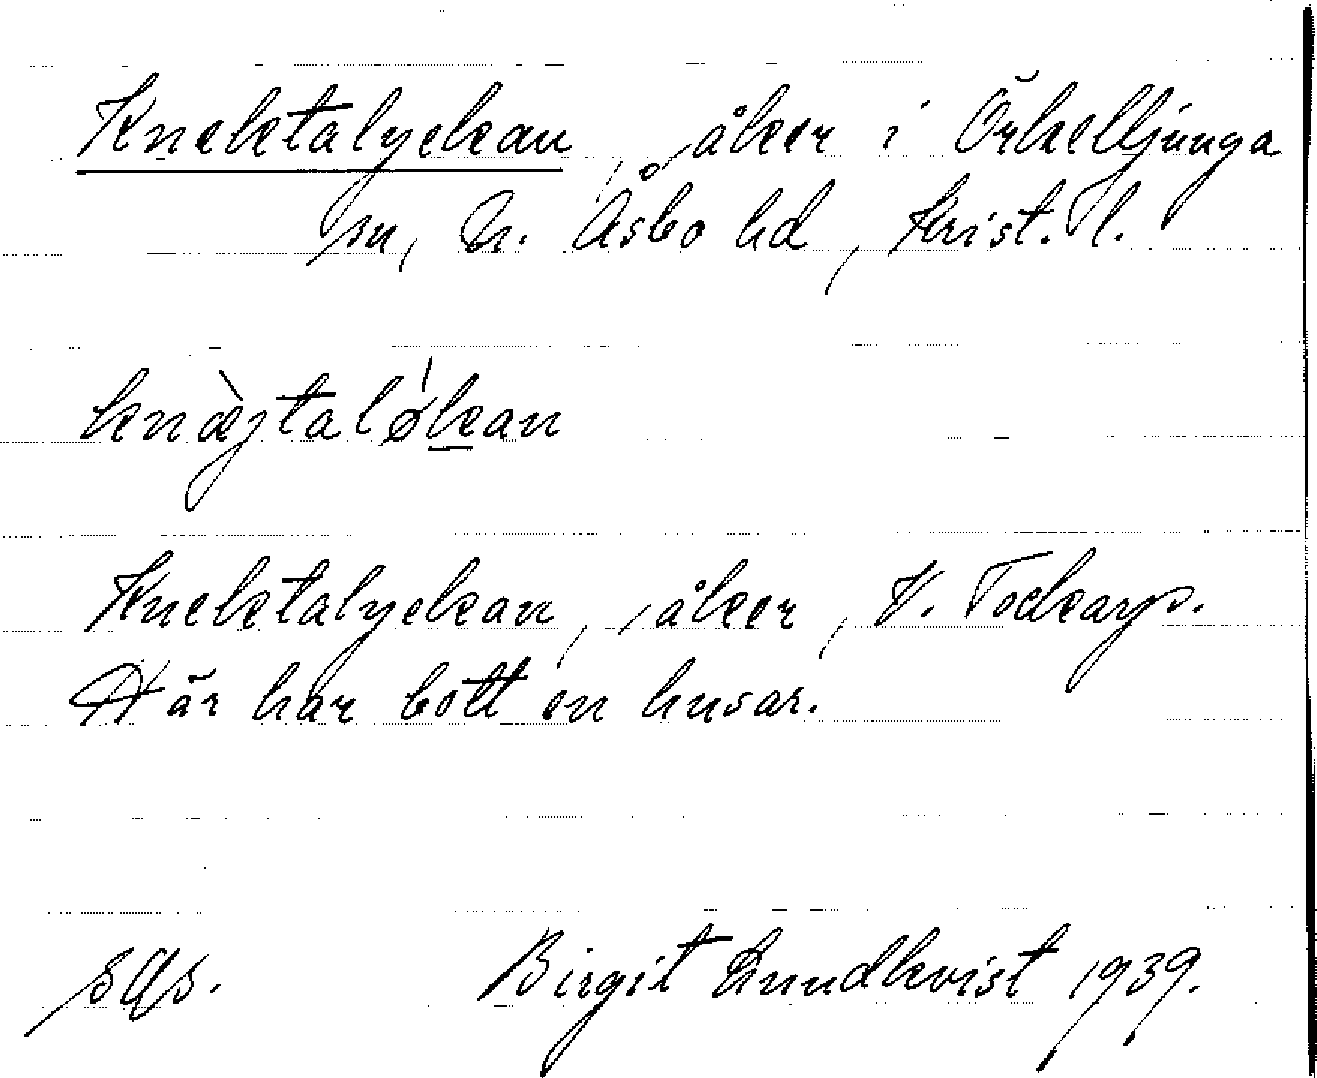 Knektalyckan, åker i Örkelljunga
sn, N. Åsbo hd, Krist. l.
knæ̀jtalǿkan
Knektalyckan, åker, V. Tockarp.
Här har bott en husar.
sgs. Birgit Lundkvist 1939.